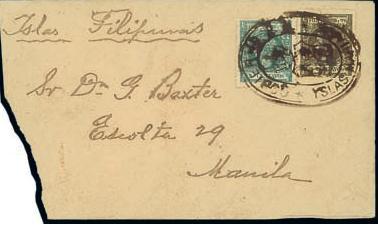 Islas Filipinas
YSLAS
Sr Dn G. Baxter
Escolta 29
Manila